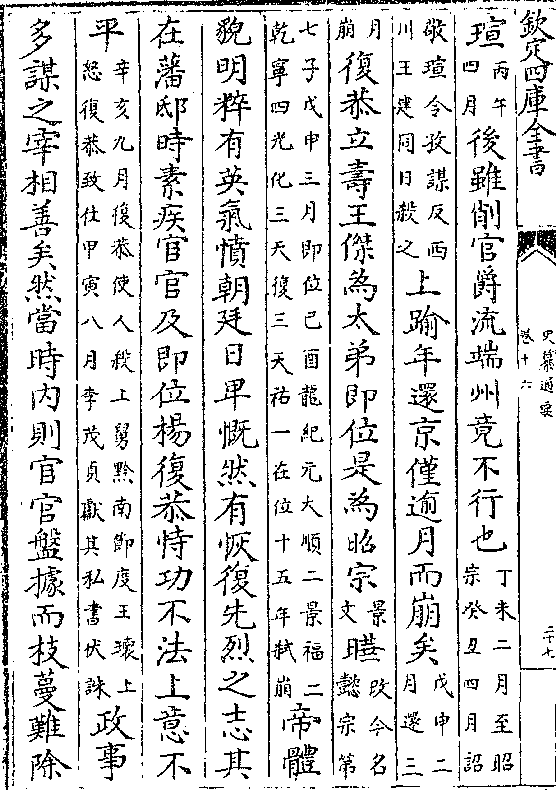 欽定四庫全書
史纂通要
卷十六
二十七
瑄丙午四月後雖削官爵流端州竟不行也丁未二月至昭宗癸丑四月詔
敬瑄令孜謀反西川王建同日殺之上踰年還京僅逾月而崩矣戊申二月還三
月崩復恭立壽王傑為太弟即位是為昭宗景文曄改今名懿宗第
七子戊申三月即位己酉龍紀元大順二景福二乾寧四光化三天復三天祐一在位十五年弑崩帝體
貌明粹有英氣憤朝廷日卑慨然有恢復先烈之志其
在藩邸時素疾宦官及即位楊復恭恃功不法上意不
平辛亥九月復恭使人殺上舅黔南節度王瓌上怒復恭致仕甲寅八月李茂貞獻其私書伏誅政事
多謀之宰相善矣然當時内則宦官盤據而枝蔓難除